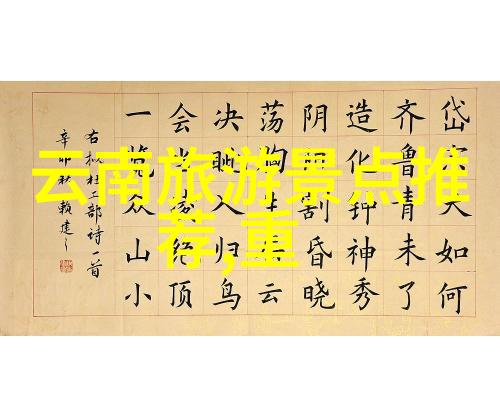 云南旅游景点推
荐,重
岱宗夫如何
齐鲁青未了
造化钟神秀
阴割昏晓
荡胸生云
决眦入归鸟
会当凌绝顶
一览众山小
右拟杜工部诗一首
辛卯秋 赖建